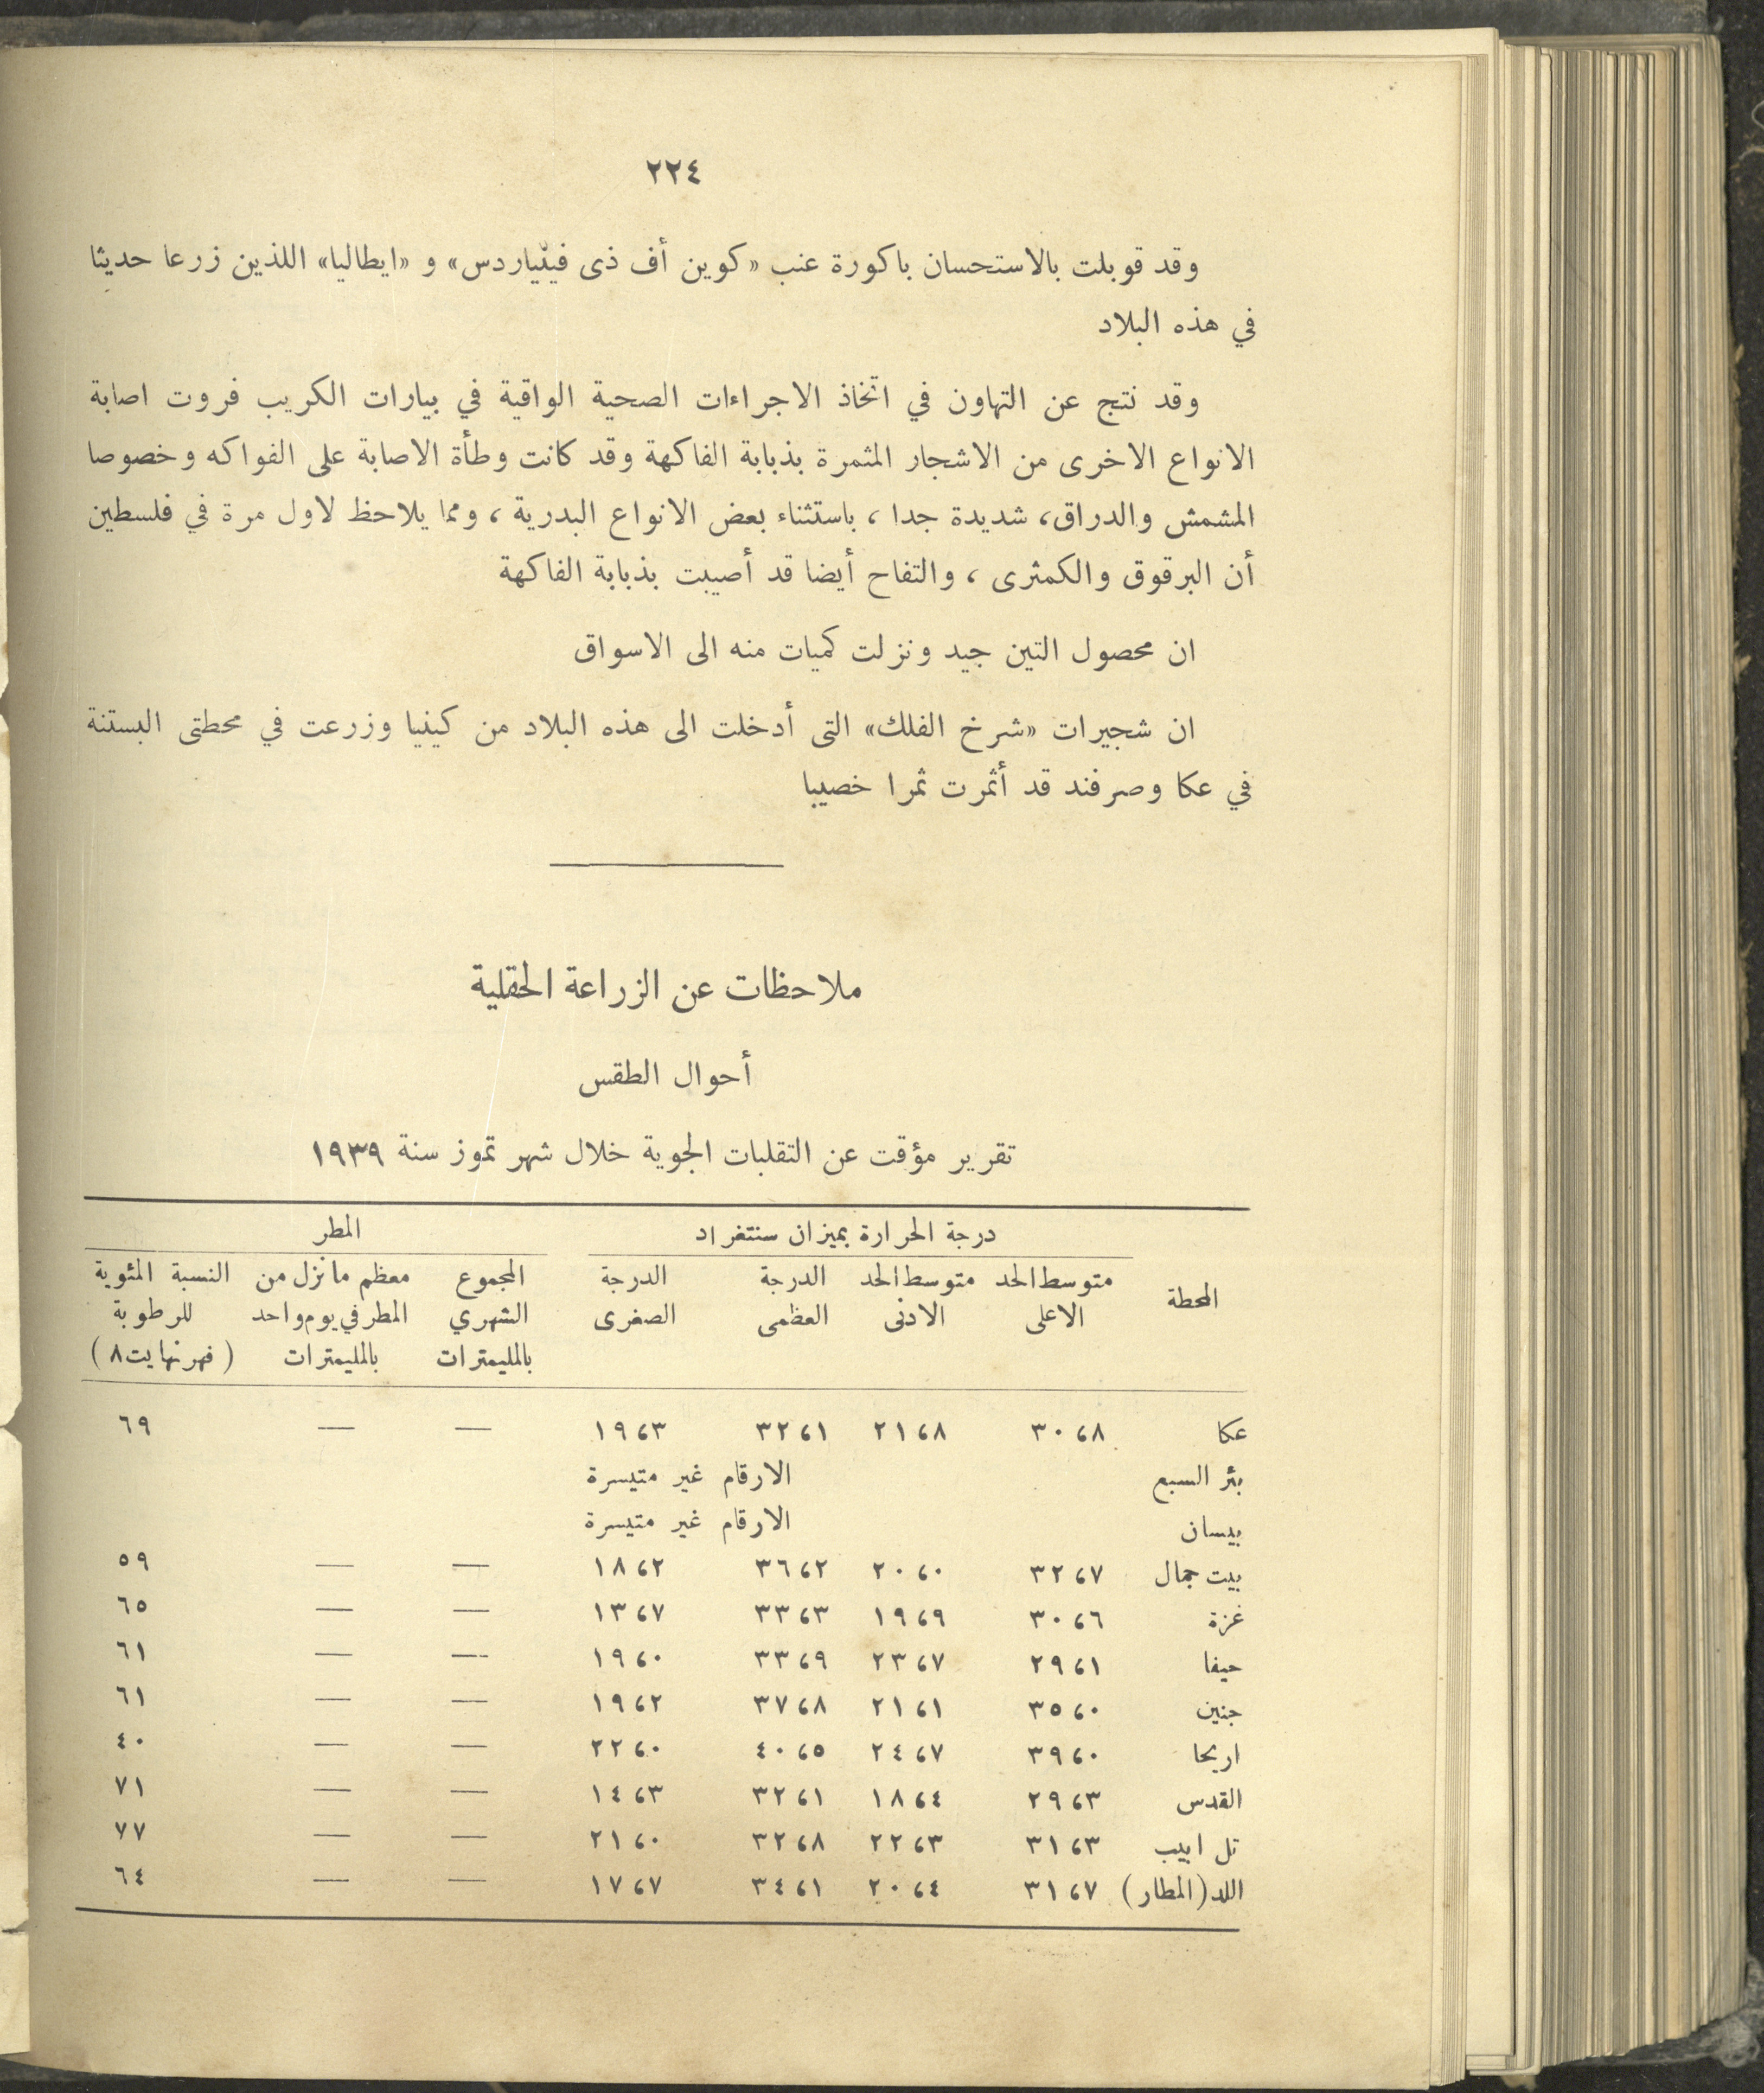 ٢٢٤
وقد قوبلت بالاستحسان باكورة عنب «كوين أف ذى فينياردس» و «ايطاليا» اللذين زرعا حديثا
في هذه البلاد
وقد نتج عن التهاون في اتخاذ الاجراءات الصحية الواقية في بيارات الكريب فروت اصابة
الانواع الاخرى من الاشجار المثمرة بذبابة الفاكهة وقد كانت وطأة الاصابة على الفواكه وخصوصا
المشمش والدراق، شديدة جدا ، باستثناء بعض الانواع البدرية ، ومما يلاحظ لاول مرة في فلسطين
أن البرقوق والكمثرى ، والتفاح أيضا قد أصيبت بذبابة الفاكهة
ان محصول التين جيد ونزلت كميات منه الى الاسواق
ان شجيرات «شرخ الفلك» التى أدخلت الى هذه البلاد من كينيا وزرعت في محطتى البستنة
في عكا وصرفند قد أثمرت ثمرا خصيبا
ملاحظات عن الزراعة الحقلية
أحوال الطقس
تقرير مؤقت عن التقلبات الجوية خلال شهر تموز سنة ١٩٣٩
درجة الحرارة بميزان سنتغراد المطر
المحطة متوسط الحد متوسط الحد الدرجة الدرجة المجموع معظم ما نزل من النسبة المئوية
الاعلى الادنى العظمى الصغرى الشهري المطر في يوم واحد للرطوبة
بالمليمترات بالمليمترات (فهرنهايت ٨)
عكا ٣٠،٨ ٢١،٨ ٣٢،١ ١٩،٣ — — ٦٩
بئر السبع الارقام غير متيسرة
بيسان الارقام غير متيسرة
بيت جمال ٣٢،٧ ٢٠،٠ ٣٦،٢ ١٨،٢ — — ٥٩
غزة ٣٠،٦ ١٩،٩ ٣٣،٣ ١٣،٧ — — ٦٥
حيفا ٢٩،١ ٢٣،٧ ٣٣،٩ ١٩،٠ — — ٦١
جنين ٣٥،٠ ٢١،١ ٣٧،٨ ١٩،٢ — — ٦١
اريحا ٣٩،٠ ٢٤،٧ ٤٠،٥ ٢٢،٠ — — ٤٠
القدس ٢٩،٣ ١٨،٤ ٣٢،١ ١٤،٣ — — ٧١
تل ابيب ٣١،٣ ٢٢،٣ ٣٢،٨ ٢١،٠ — — ٧٧
اللد (المطار) ٣١،٧ ٢٠،٤ ٣٤،١ ١٧،٧ — — ٦٤